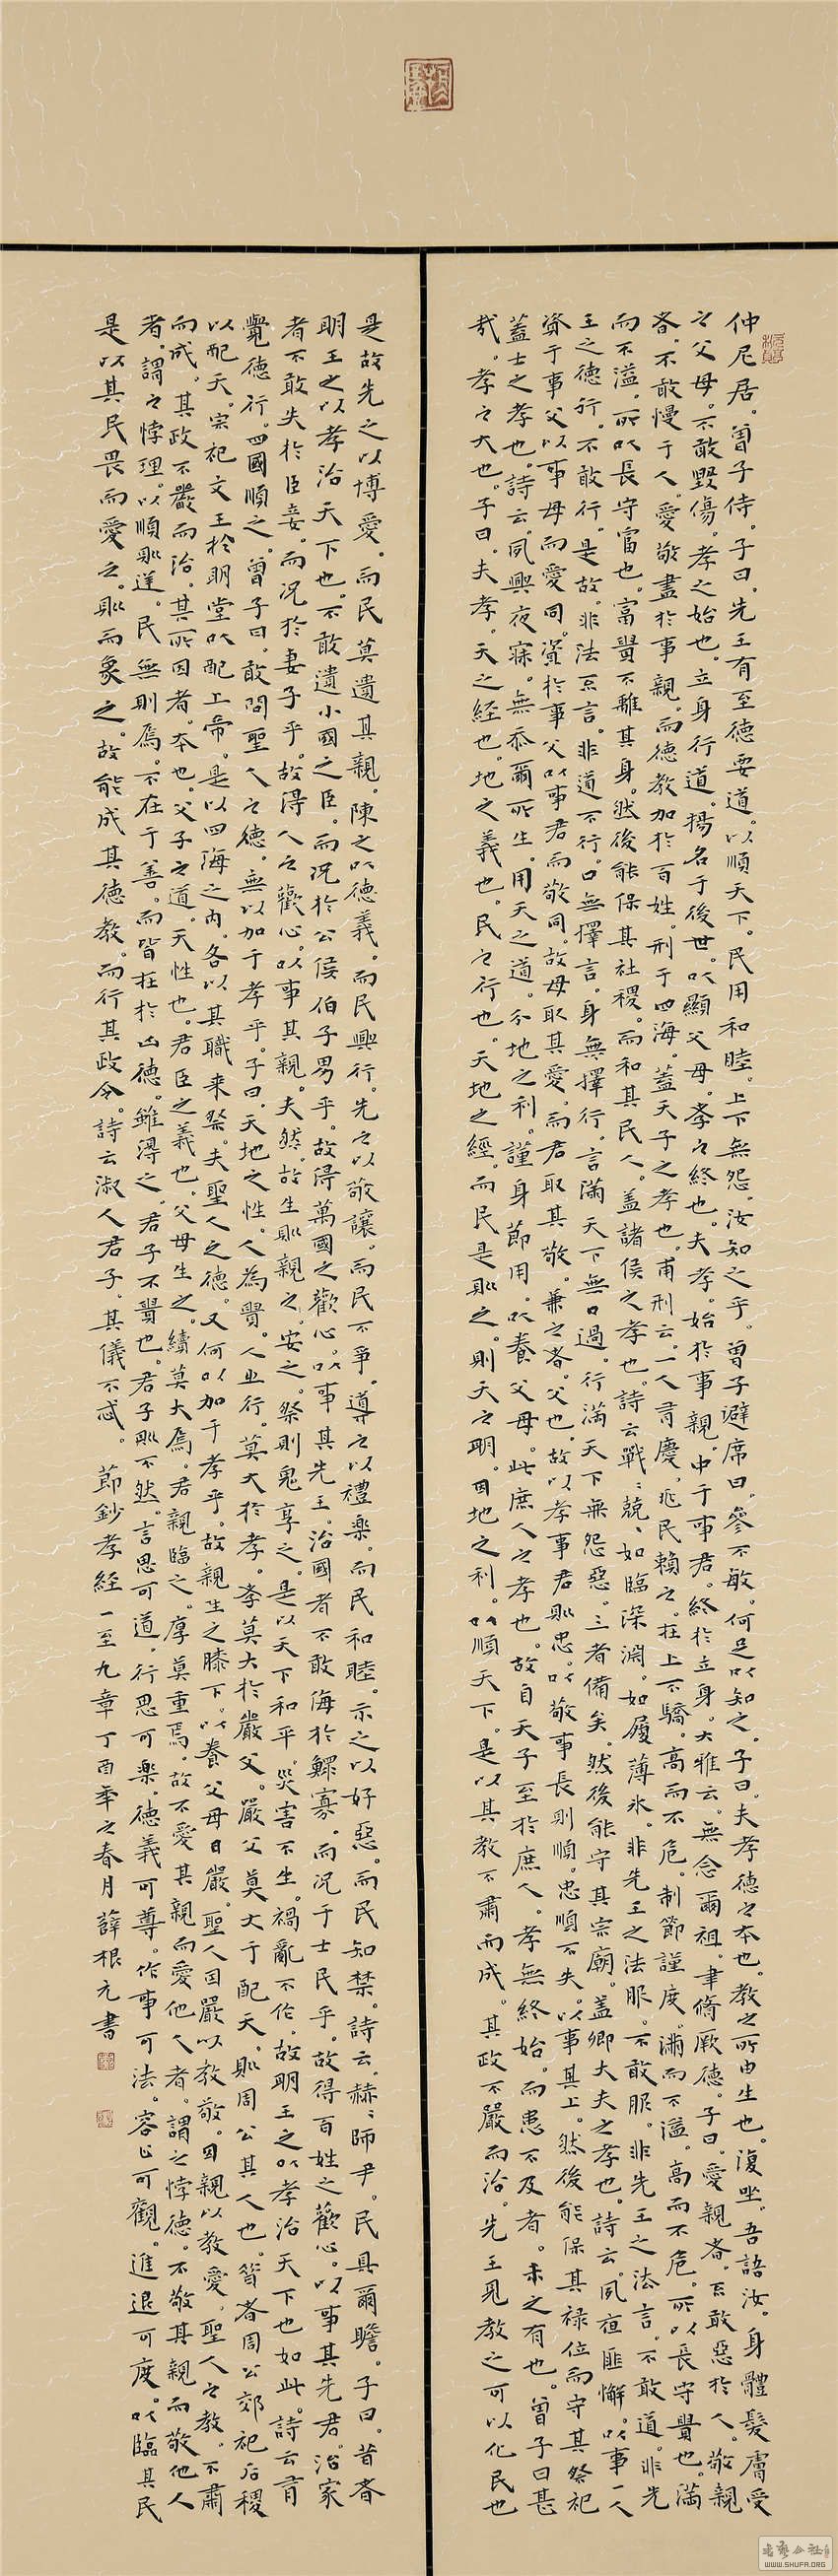 仲尼居。曾子侍。子曰。先王有至德要道。以順天下。民用和睦。上下無怨。汝知之乎。曾子避席曰。參不敏。何足以知之。子曰。夫孝德之本也。教之所由生也。復坐。吾語汝。身體髮膚受
之父母。不敢毀傷。孝之始也。立身行道。揚名于後世。以顯父母。孝之終也。夫孝。始於事親。中于事君。終於立身。大雅云。無念爾祖。聿脩厥德。子曰。愛親者。不敢惡於人。敬親
者。不敢慢于人。愛敬盡於事親。而德教加於百姓。刑于四海。蓋天子之孝也。甫刑云。一人有慶。兆民賴之。在上不驕。高而不危。制節謹度。滿而不溢。高而不危。所以長守貴也。滿
而不溢。所以長守富也。富貴不離其身。然後能保其社稷。而和其民人。蓋諸侯之孝也。詩云戰〻兢〻如臨深淵。如履薄冰。非先王之法服。不敢服。非先王之法言。不敢道。非先
王之德行。不敢行。是故。非法不言。非道不行。口無擇言。身無擇行。言滿天下無口過。行滿天下無怨惡。三者備矣。然後能守其宗廟。蓋卿大夫之孝也。詩云。夙夜匪懈。以事一人
資于事父以事母而愛同。資於事父以事君而敬同。故母取其愛。而君取其敬。兼之者。父也。故以孝事君則忠。以敬事長則順。忠順不失。以事其上。然後能保其祿位而守其祭祀
蓋士之孝也。詩云。夙興夜寐。無忝爾所生。用天之道。分地之利。謹身節用。以養父母。此庶人之孝也。故自天子至於庶人。孝無終始。而患不及者。未之有也。曾子曰甚
哉。孝之大也。子曰。夫孝。天之經也。地之義也。民之行也。天地之經。而民是則之。則天之明。因地之利。以順天下。是以其教不肅而成。其政不嚴而治。先王見教之可以化民也
是故先之以博愛。而民莫遺其親。陳之以德義。而民興行。先之以敬讓。而民不爭。導之以禮樂。而民和睦。示之以好惡。而民知禁。詩云。赫〻師尹。民具爾瞻。子曰。昔者
明王之以孝治天下也。不敢遺小國之臣。而況於公侯伯子男乎。故得萬國之歡心。以事其先王。治國者不敢侮於鰥寡。而況于士民乎。故得百姓之歡心。以事其先君。治家
者不敢失於臣妾。而況於妻子乎。故得人之歡心。以事其親。夫然。故生則親之。安之。祭則鬼享之。是以天下和平。災害不生。禍亂不作。故明王之以孝治天下也如此。詩云有
覺德行。四國順之。曾子曰。敢問聖人之德。無以加于孝乎。子曰。天地之性。人為貴。人之行。莫大於孝。孝莫大於嚴父。嚴父莫大于配天。則周公其人也。昔者周公郊祀后稷
以配天。宗祀文王於明堂以配上帝。是以四海之內。各以其職来祭。夫聖人之德。又何以加于孝乎。故親生之膝下。以養父母日嚴。聖人因嚴以教敬。因親以教愛。聖人之教。不肅
而成。其政不嚴而治。其所因者。本也。父子之道。天性也。君臣之義也。父母生之。續莫大焉。君親臨之。厚莫重焉。故不愛其親而愛他人者。謂之悖德。不敬其親而敬他人
者。謂之悖理。以順則逆。民無則焉。不在于善。而皆在於凶德。雖得之。君子不貴也。君子則不然。言思可道。行思可樂。德義可尊。作事可法。容止可觀。進退可度。以臨其民
是以其民畏而愛之。則而象之。故能成其德教。而行其政令。詩云淑人君子。其儀不忒。 節鈔孝經一至九章丁酉年之春月薛根元書
WWW.SHUFA.ORG